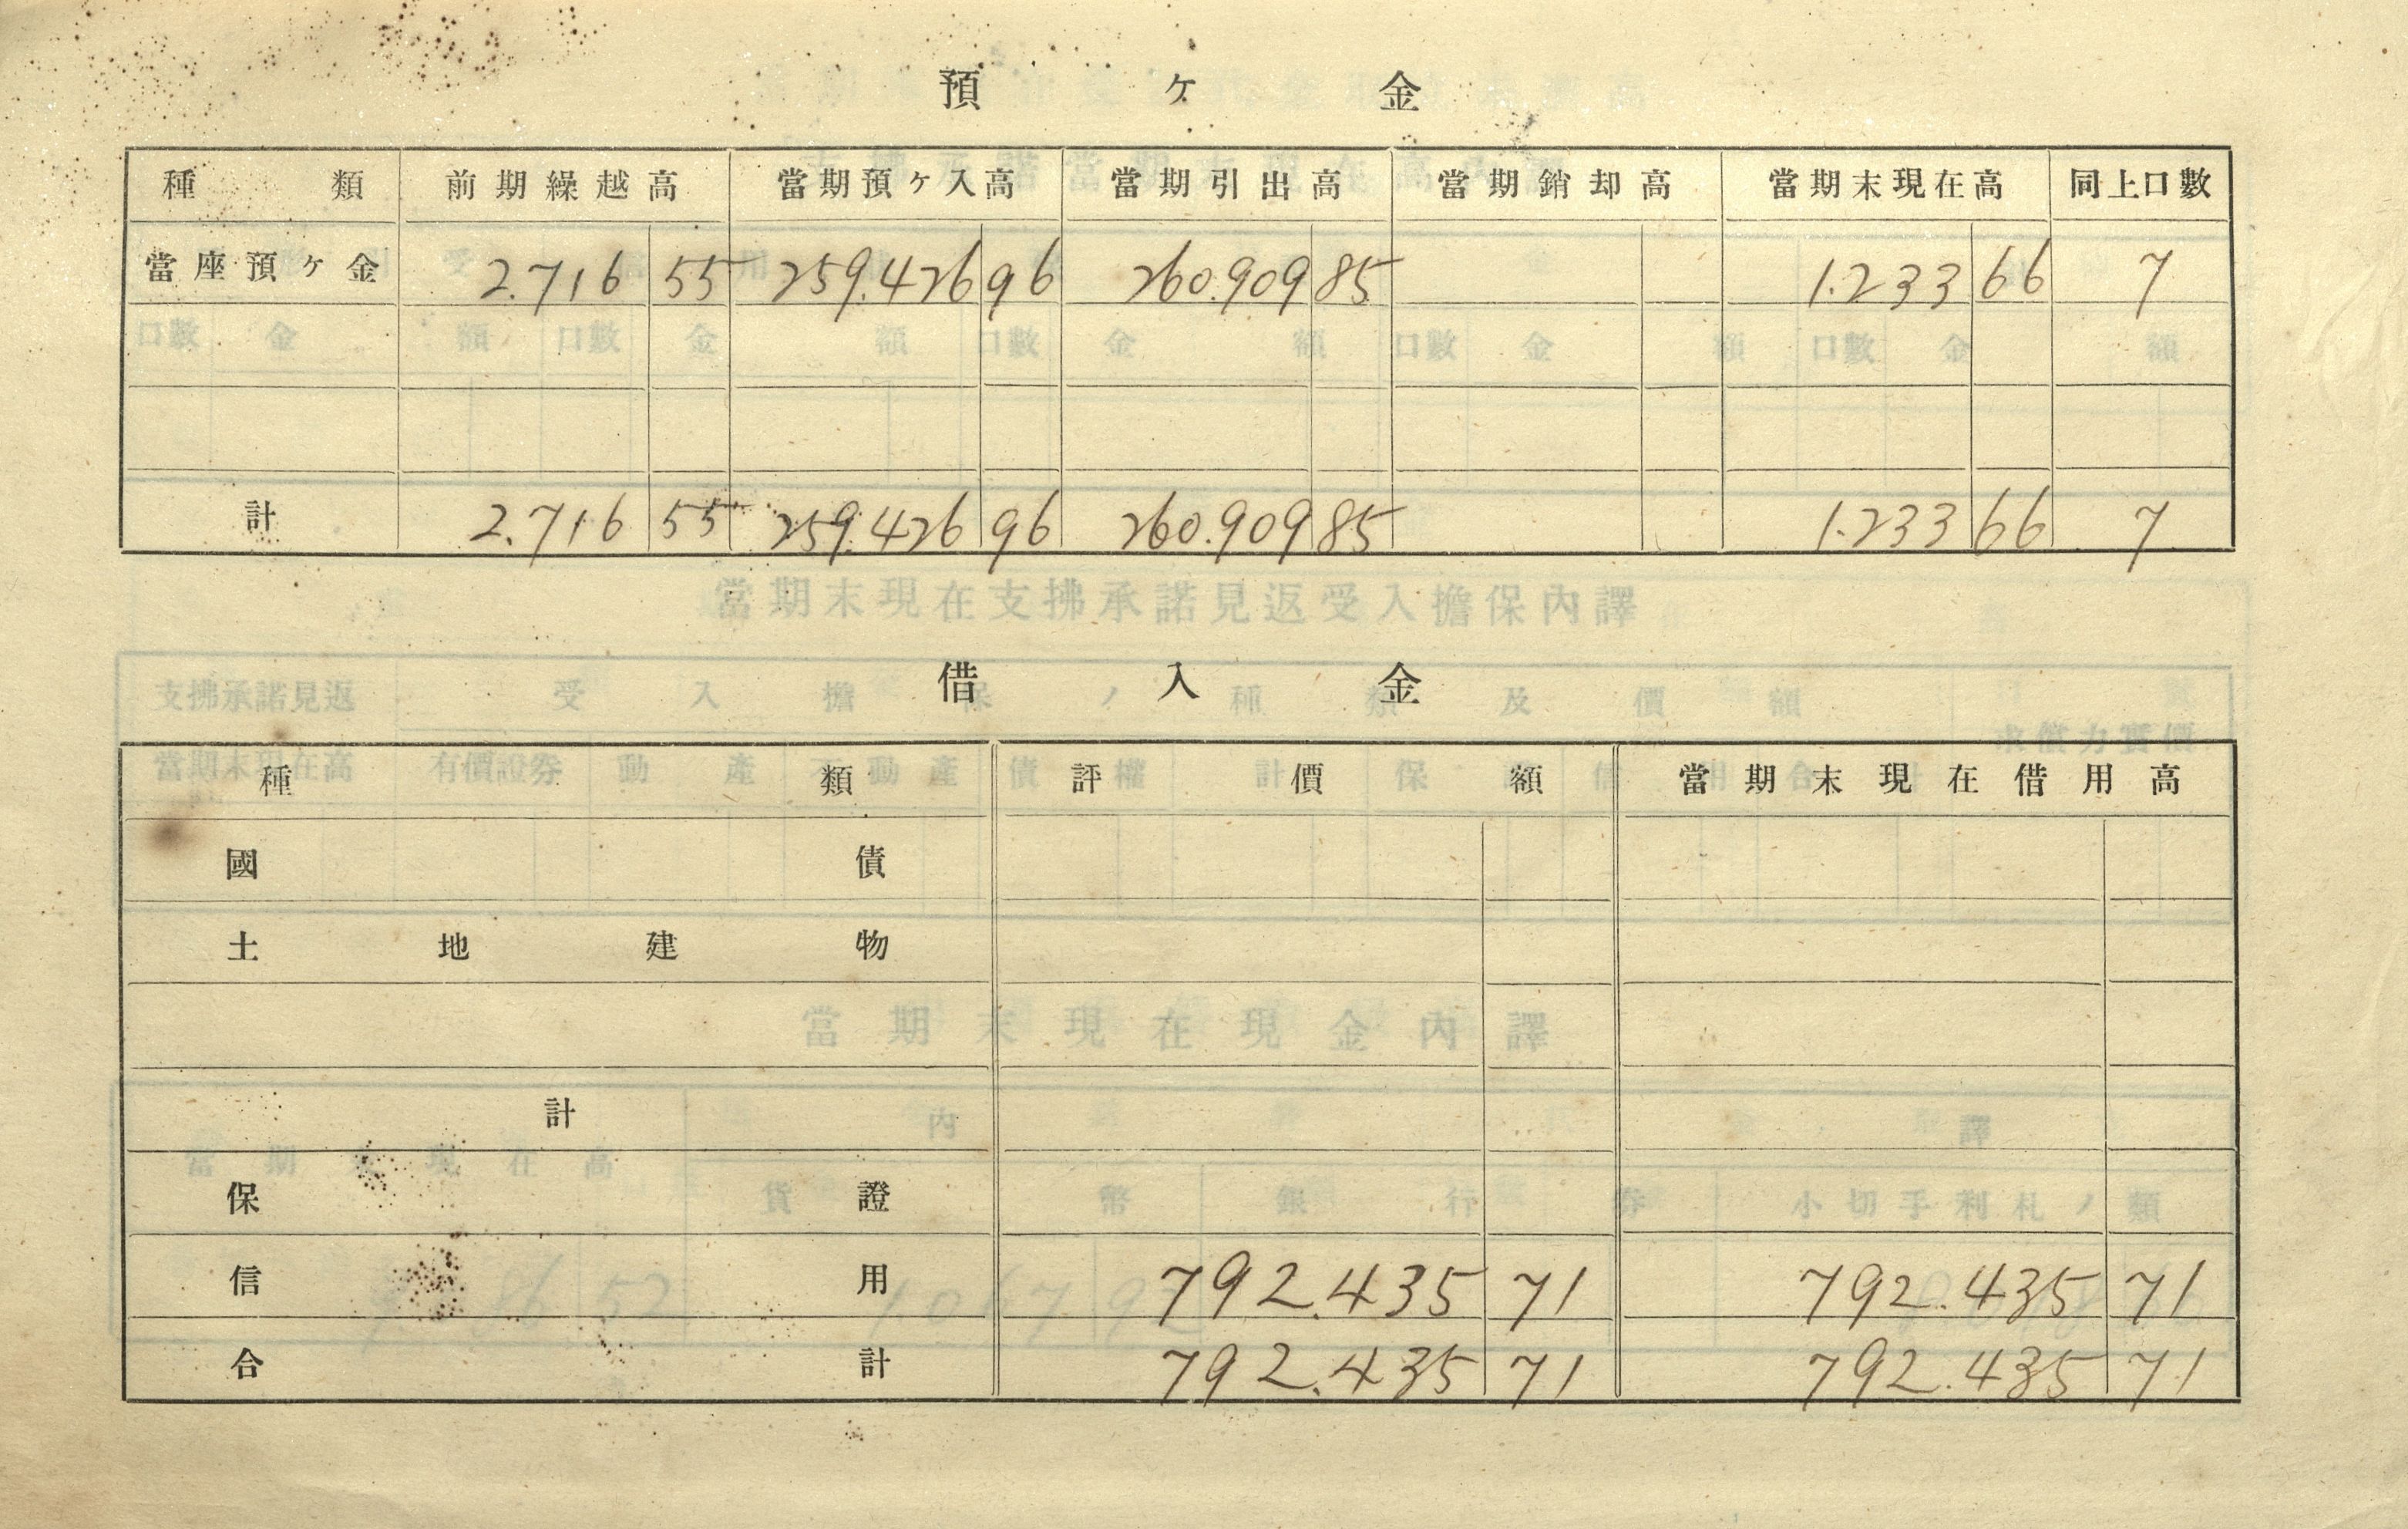 預ヶ金
種類 前期繰越高 當期預ヶ入高 當期引出高 當期銷却高 當期末現在高 同上口數
當座預ヶ金 2.716 55 259.426 96 260.909 85 1.233 66 7
計 2.716 55 259.426 96 260.909 85 1.233 66 7
借入金
種類 評價額 當期末現在借用高
國債
土地建物
計
保證
信用 792.435 71 792.435 71
合計 792.435 71 792.435 71